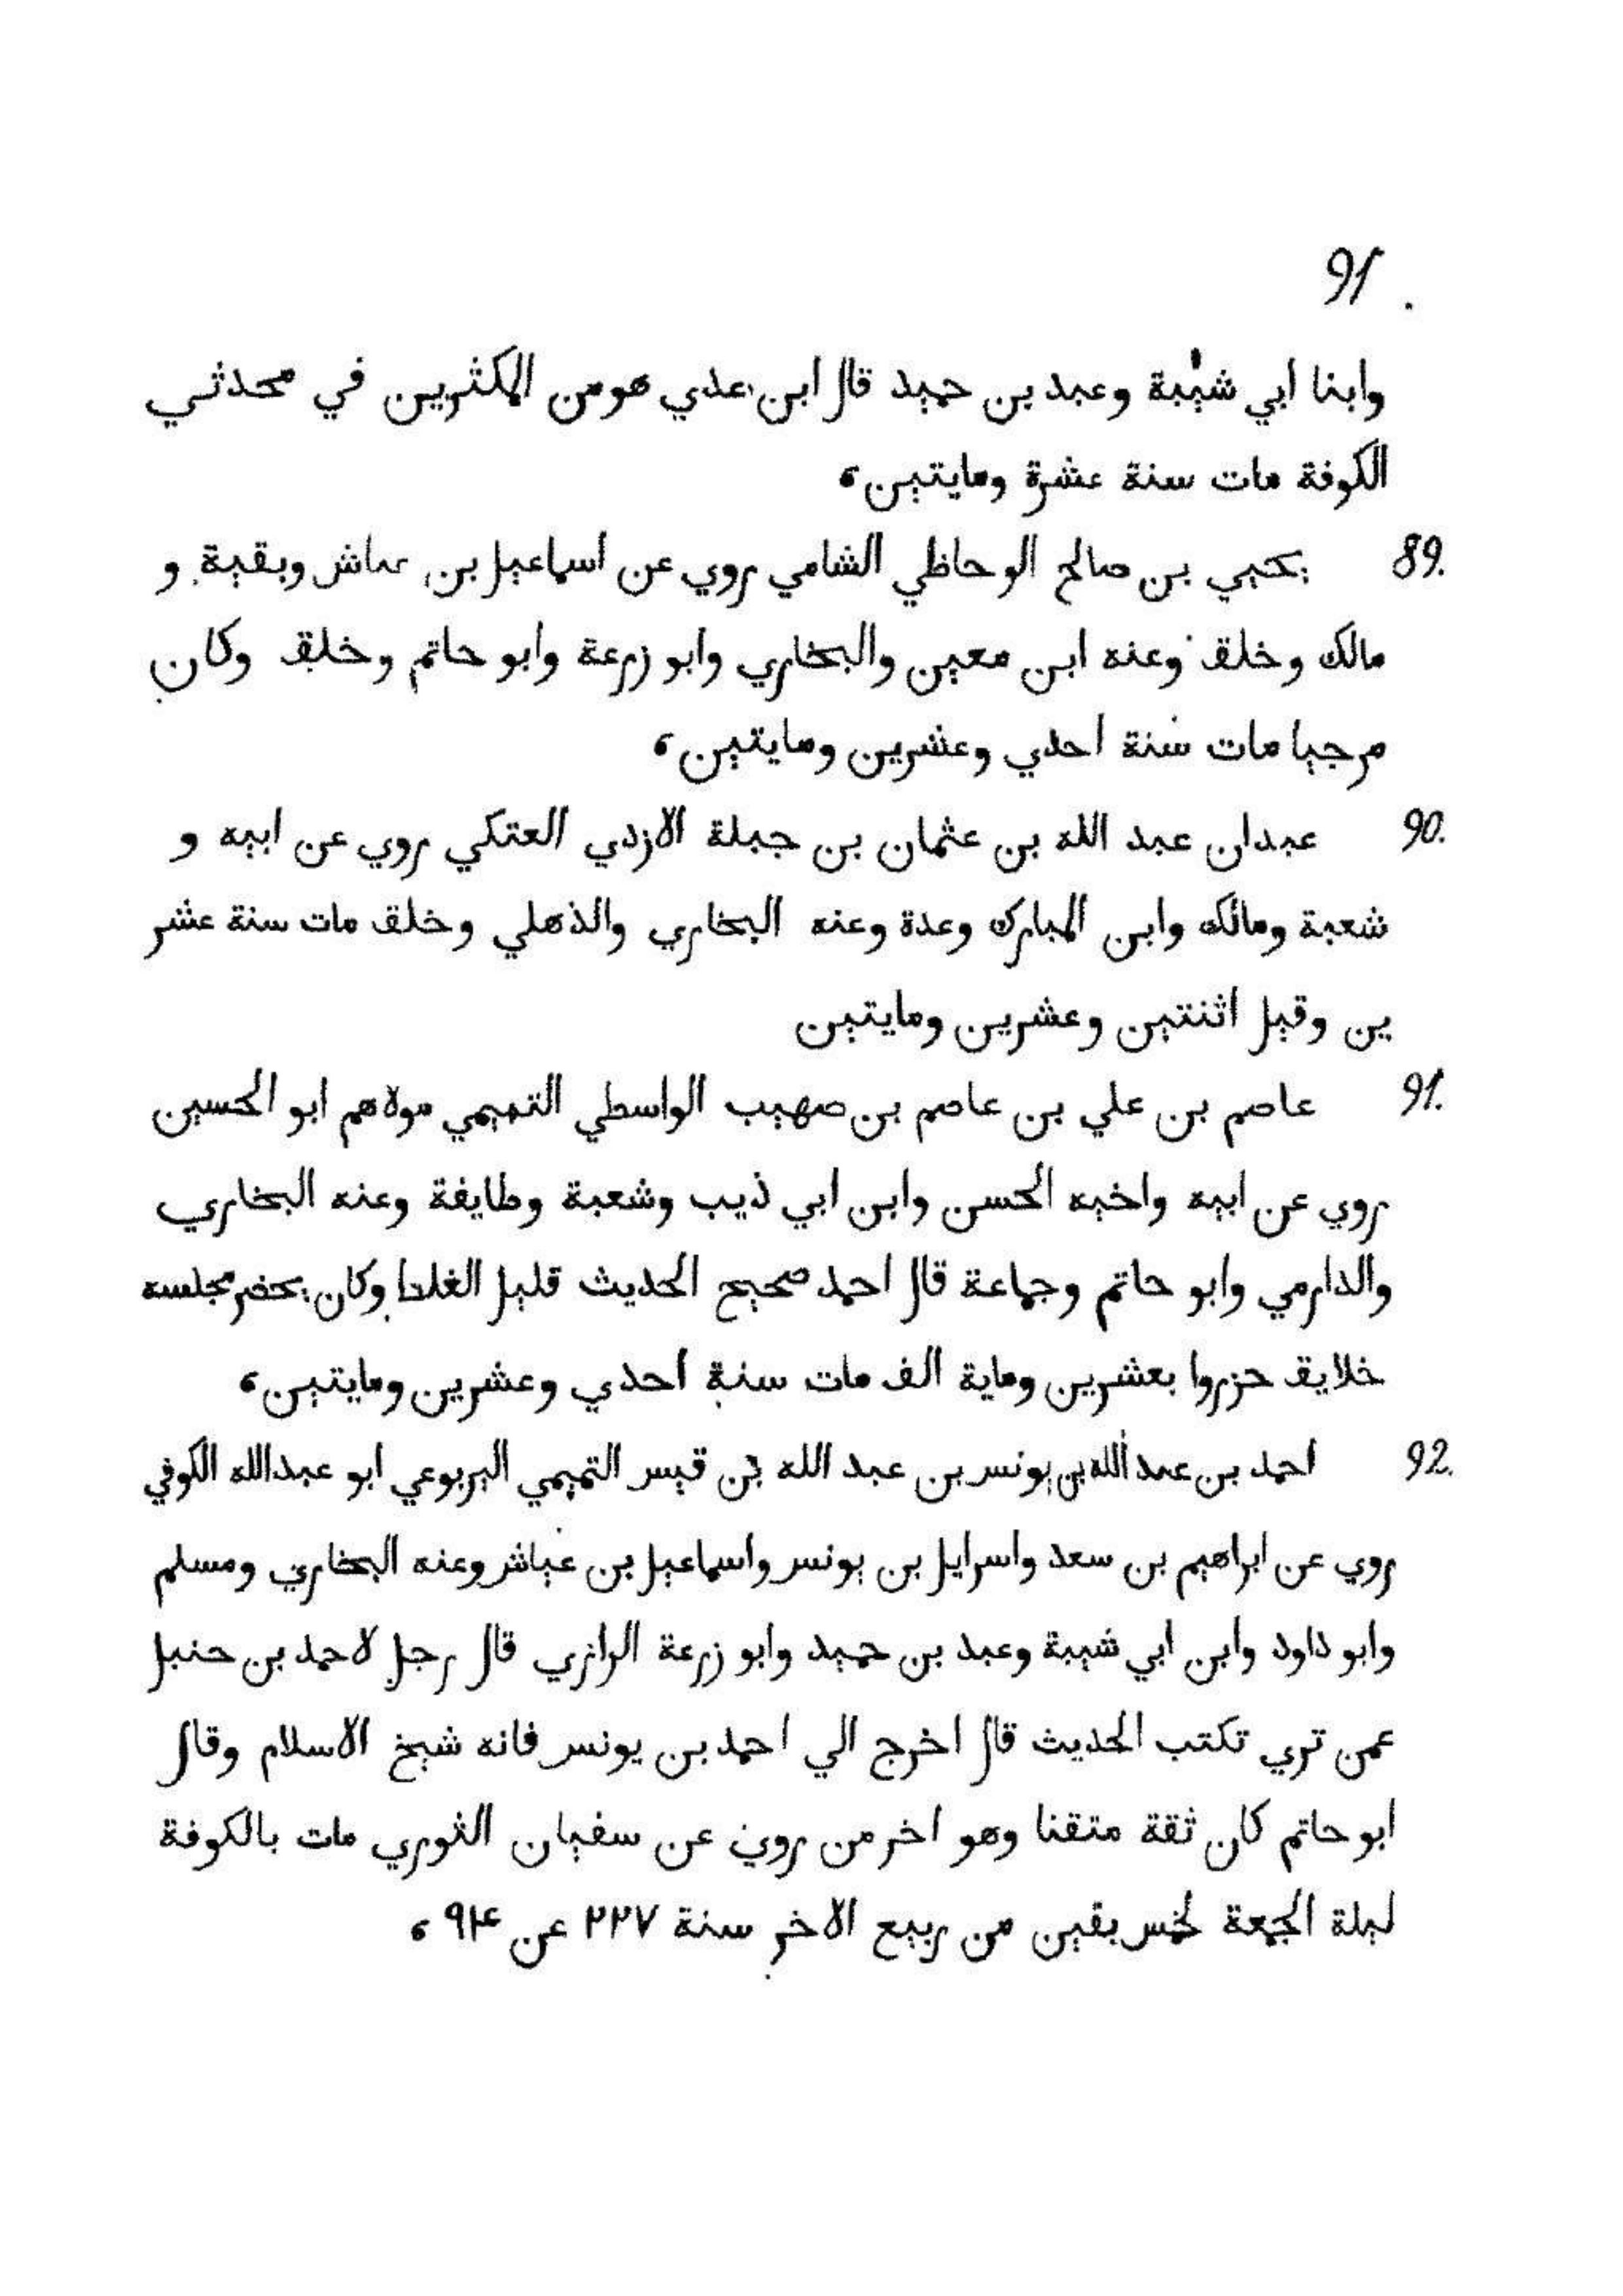 91
وابنا ابي شيبة وعبد بن حميد قال ابن عدي هو من المكثرين في محدثي
الكوفة مات سنة عشرة ومايتين،
89. يحيي بن صالح الوحاظي الشامي روي عن اسماعيل بن عياش وبقية و
مالك وخلق وعنه ابن معين والبخاري وابو زرعة وابو حاتم وخلق وكان
مرجيا مات سنة احدي وعشرين ومايتين،
90. عبدان عبد الله بن عثمان بن جبلة الازدي العتكي روي عن ابيه و
شعبة ومالك وابن المبارك وعدة وعنه البخاري والذهلي وخلق مات سنة عشر
ين وقيل اثنتين وعشرين ومايتين
91. عاصم بن علي بن عاصم بن صهيب الواسطي التميمي مولاهم ابو الحسين
روي عن ابيه واخيه الحسن وابن ابي ذيب وشعبة وطايفة وعنه البخاري
والدارمي وابو حاتم وجماعة قال احمد صحيح الحديث قليل الغلط وكان يحضر مجلسه
خلايق حزروا بعشرين وماية الف مات سنة احدي وعشرين ومايتين،
92. احمد بن عبد الله بن يونس بن عبد الله بن قيس التميمي اليربوعي ابو عبد الله الكوفي
روي عن ابراهيم بن سعد واسرايل بن يونس واسماعيل بن عياش وعنه البخاري ومسلم
وابو داود وابن ابي شيبة وعبد بن حميد وابو زرعة الرازي قال رجل لاحمد بن حنبل
عمن تري تكتب الحديث قال اخرج الي احمد بن يونس فانه شيخ الاسلام وقال
ابو حاتم كان ثقة متقنا وهو اخر من روي عن سفيان الثوري مات بالكوفة
ليلة الجمعة لخمس بقين من ربيع الاخر سنة ٢٢٧ عن ٩٤،